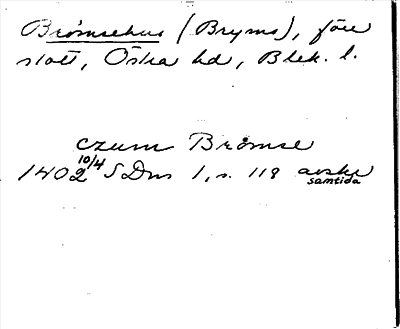 Brömsehus (Bryms), före
slott, Östra hd, Blek. l.
czum Brömse
1402 10/4 SDns 1, s. 118 avskr
samtida